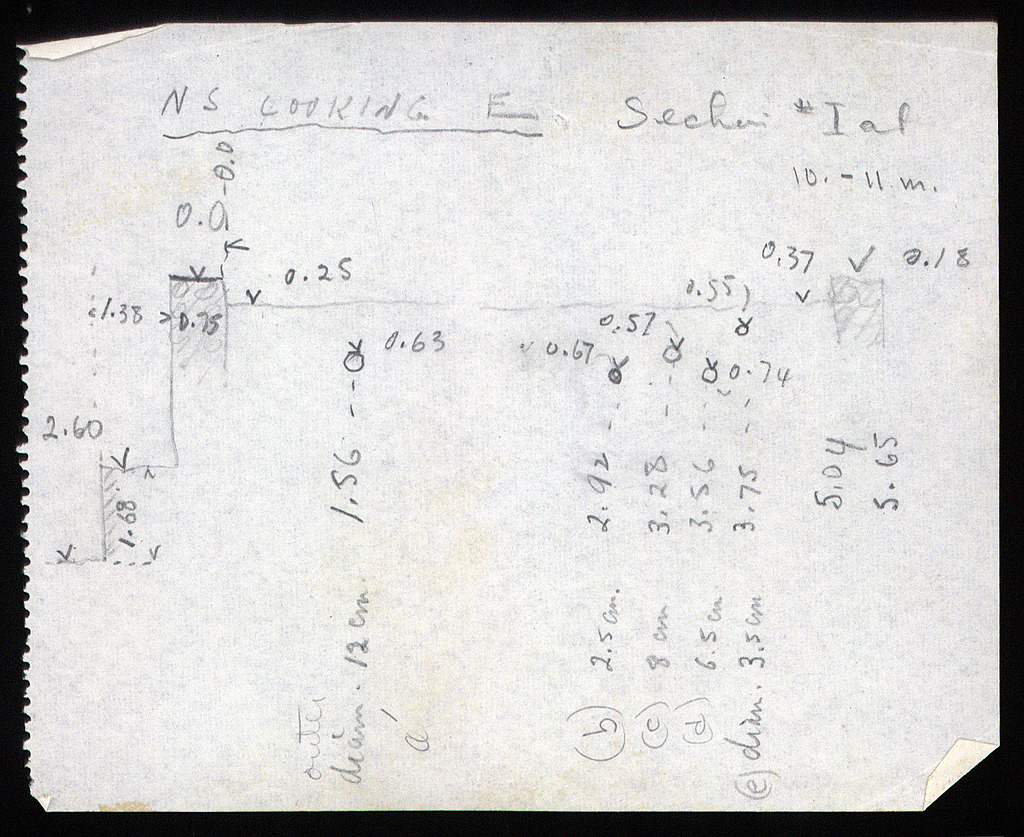 NS LOOKING E Section #I at
10. - 11 m.
0.0 - 0.0
0.25
0.37 0.18
0.55
1.38 0.75
0.63
0.67 0.57
0.74
2.60
1.68
1.56
2.92
3.28
3.56
3.75
5.04
5.65
outer
diam. 12 cm.
a
(b) 2.5 cm.
(c) 8 cm
(d) 6.5 cm
(e) diam. 3.5 cm